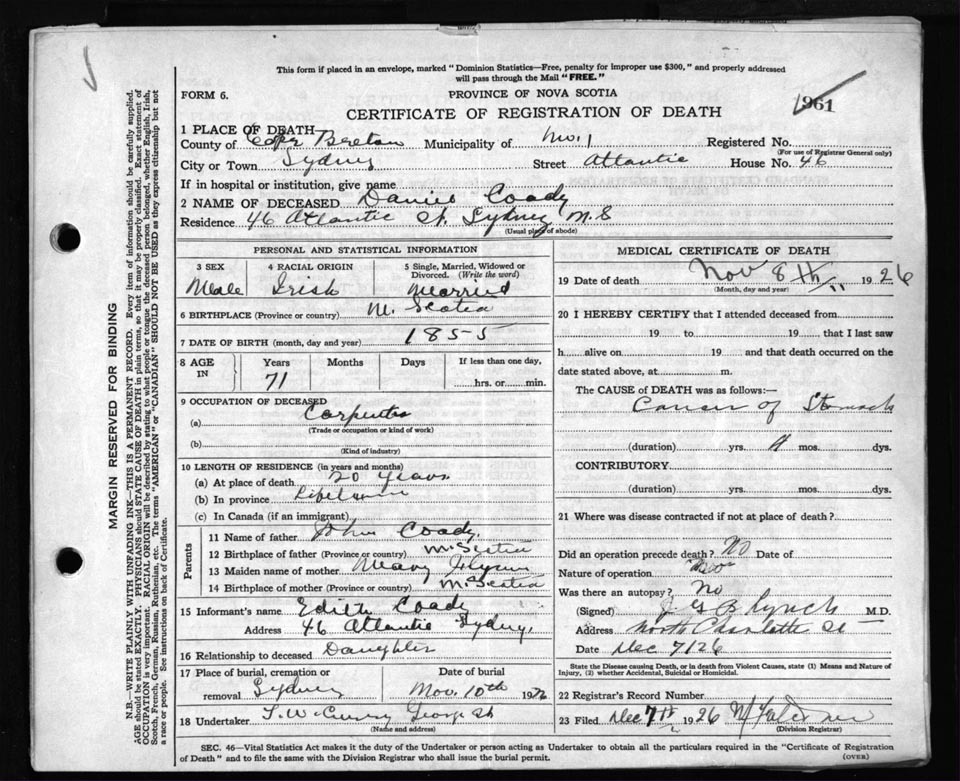 This form if placed in an envelope, marked "Dominion Statistics—Free, penalty for improper use $300," and properly addressed
will pass through the Mail "FREE."
FORM 6.
PROVINCE OF NOVA SCOTIA
1961
CERTIFICATE OF REGISTRATION OF DEATH
1 PLACE OF DEATH
County of Cape Breton Municipality of No. 1 Registered No.
(For use of Registrar General only)
City or Town Sydney Street Atlantic House No. 46
If in hospital or institution, give name
2 NAME OF DECEASED Daniel Coady
Residence 46 Atlantic St. Sydney N.S
(Usual place of abode)
PERSONAL AND STATISTICAL INFORMATION
3 SEX 4 RACIAL ORIGIN 5 Single, Married, Widowed or
Divorced. (Write the word)
Male Irish Married
6 BIRTHPLACE (Province or country) N. Scotia
7 DATE OF BIRTH (month, day and year) 1855
8 AGE IN Years Months Days If less than one day,
71 hrs. or min.
9 OCCUPATION OF DECEASED
(a) Carpenter
(Trade or occupation or kind of work)
(b)
(Kind of industry)
10 LENGTH OF RESIDENCE (in years and months)
(a) At place of death 20 Years
(b) In province Lifetime
(c) In Canada (if an immigrant)
Parents
11 Name of father John Coady
12 Birthplace of father (Province or country) N. Scotia
13 Maiden name of mother Mary
14 Birthplace of mother (Province or country) N. Scotia
15 Informant's name Edith Coady
Address 46 Atlantic Sydney,
16 Relationship to deceased Daughter
17 Place of burial, cremation or Date of burial
removal Sydney Nov. 10th 1926
18 Undertaker T. W. Curry George St
(Name and address)
MEDICAL CERTIFICATE OF DEATH
19 Date of death Nov 8th/11 1926
(Month, day and year)
20 I HEREBY CERTIFY that I attended deceased from
19 to 19 that I last saw
h alive on 19 and that death occurred on the
date stated above, at m.
The CAUSE of DEATH was as follows:—
Cancer of Stomach
(duration) yrs. mos. dys.
CONTRIBUTORY
(duration) yrs. mos. dys.
21 Where was disease contracted if not at place of death?
Did an operation precede death? No Date of
Nature of operation
Was there an autopsy? No
(Signed) J G B Lynch M.D.
Address North Charlotte St
Date Dec 7/26
State the Disease causing Death, or in death from Violent Causes, state (1) Means and Nature of
Injury, (2) whether Accidental, Suicidal or Homicidal.
22 Registrar's Record Number
23 Filed Dec 7th 1926
(Division Registrar)
SEC. 46—Vital Statistics Act makes it the duty of the Undertaker or person acting as Undertaker to obtain all the particulars required in the "Certificate of Registration
of Death" and to file the same with the Division Registrar who shall issue the burial permit.
(OVER)
MARGIN RESERVED FOR BINDING
N.B.—WRITE PLAINLY WITH UNFADING INK—THIS IS A PERMANENT RECORD. Every item of information should be carefully supplied.
AGE should be stated EXACTLY. PHYSICIANS should STATE CAUSE OF DEATH in plain terms, so that it may be properly classified. Exact statement of
OCCUPATION is very important. RACIAL ORIGIN will be described by stating to what people or tongue the deceased person belonged, whether English, Irish,
Scotch, French, German, Russian, Ruthenian, etc. The terms "AMERICAN" or "CANADIAN" SHOULD NOT BE USED as they express citizenship but not
a race or people. See instructions on back of Certificate.